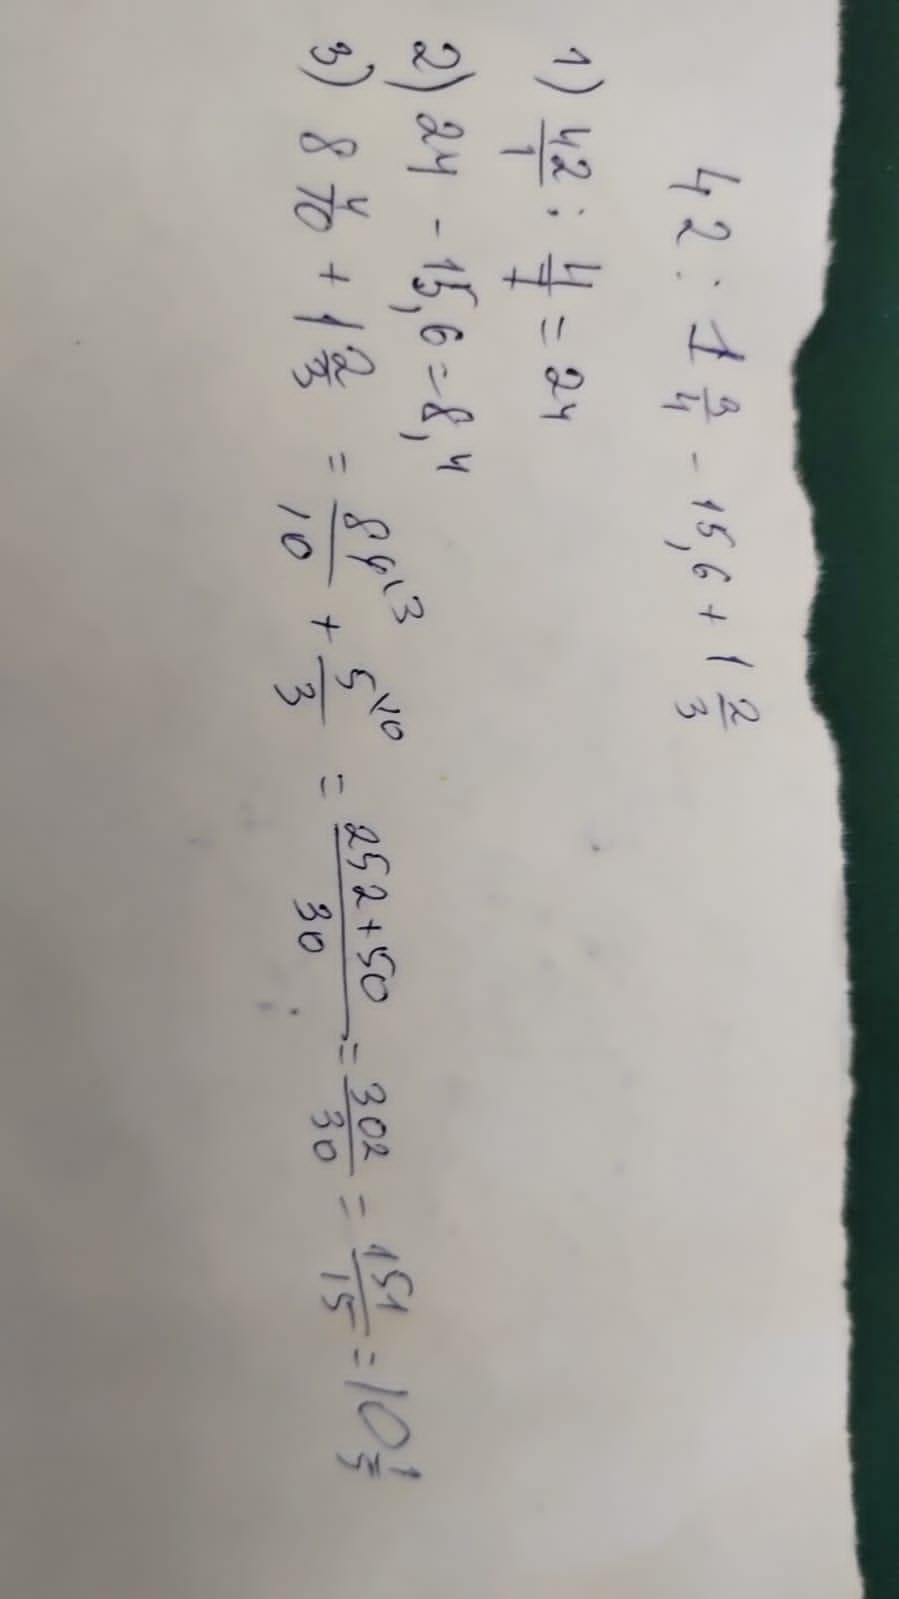 42 : 1 3/4 - 15,6 + 1 2/3
1) 42/1 : 4/7 = 24
2) 24 - 15,6 = 8,4
3) 8 4/10 + 1 2/3 = 84\3/10 + 5\10/3 = 252+50/30 = 302/30 = 151/15 = 10 1/5